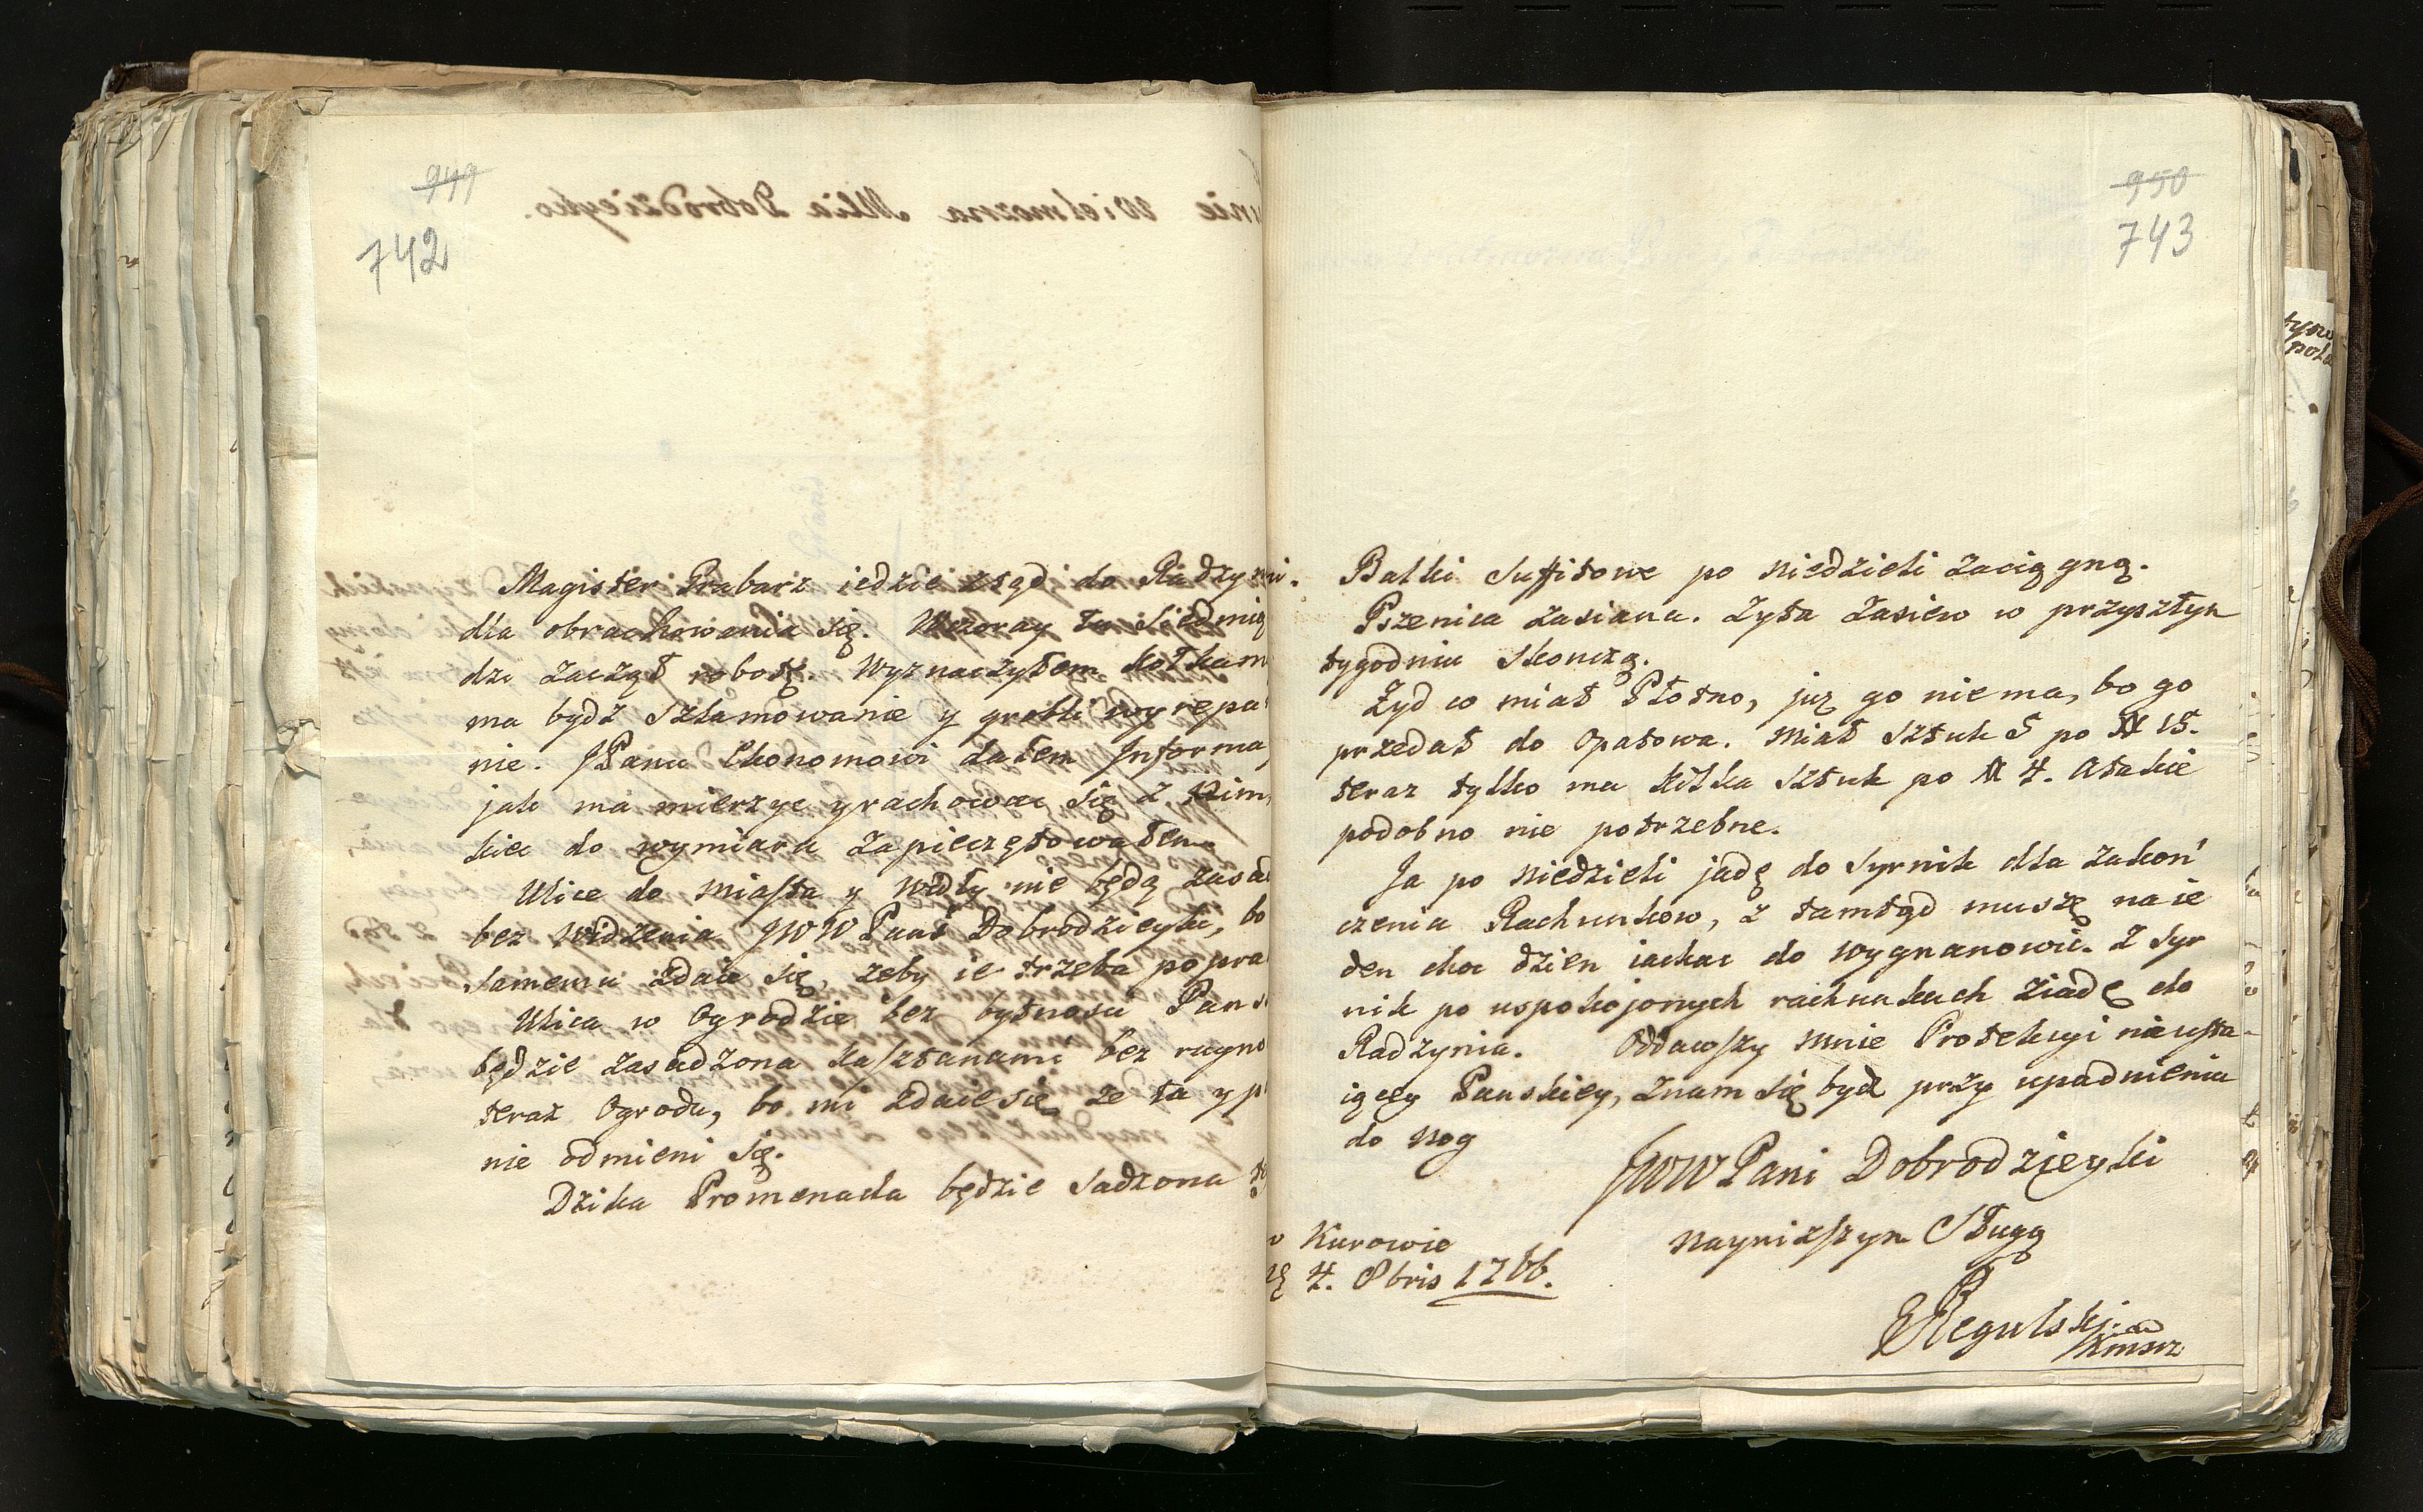 949
742
Magister Grabarz iedzie ztąd do Radzyni.
dla obrachowania się. Wczoray tu Siedmią
dzi zaczął robotę. Wyznaczyłem kołkam
ma bydź Szlamowanie y grobli wyrepa
nie. JPanu Ekonomowi dałem Informa
jak ma mierzyc y rachowac się z nim,
kiec do wymiaru zapieczętowałem.
Ulice do miasta y nie będą zasad
bez widzenia JWW Pani Dobrodzieyki, bo
samemu zdaie się, zeby ie trzeba popra
Ulica w Ogrodzie bez bytnosci Pans
będzie zasadzona kasztanami bez ruyno
teraz Ogrodu, bo mi zdaie się ze ta y p
nie odmieni się.
Dzika Promenada będzie sadzona
950
743
Balki Suffitowe po niedzieli zaciągną.
Pszenica zasiana. Zyta zasiew w przyszłym
tygodniu skonczą.
Zyd co miał Płotno, juz go nie ma, bo go
przedał do Opatowa. Miał Sztuk 5 po # 15.
teraz tylko ma kilka Sztuk po # 4. A takie
podobno nie potrzebne.
Ja po niedzieli jadę do Syrnik dla zakoń
czenia Rachunkow, z tamtąd muszę na ie
den choc dzien iachac do Wygnanowic. Z Syr
nik po uspokojonych rachunkach ziadę do
Radzynia. Oddawszy mnie Protekcyi nieusta
iącey Panskiey, znam się bydz przy upadnieniu
do nog
JWW Pani Dobrodzieyki
w Kurowie
4. 8bris 1766.
nayniższym Sługą
Regulski